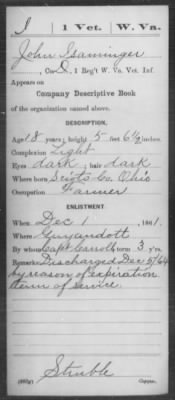 I | 1 Vet. | W. Va.
John Isaminger
, Co. D, 1 Reg't W. Va. Vet. Inf.
Appears on
Company Descriptive Book
of the organization named above.
DESCRIPTION.
Age 18 years; height 5 feet 6½ inches.
Complexion Light
Eyes dark; hair dark
Where born Scioto Co. Ohio
Occupation Farmer
ENLISTMENT.
When Dec 1, 1861.
Where Guyandott
By whom Capt Carroll; term 3 y'rs.
Remarks: Discharged Dec 5/64
by reason of expiration
term of service.
Struble
Copyist.